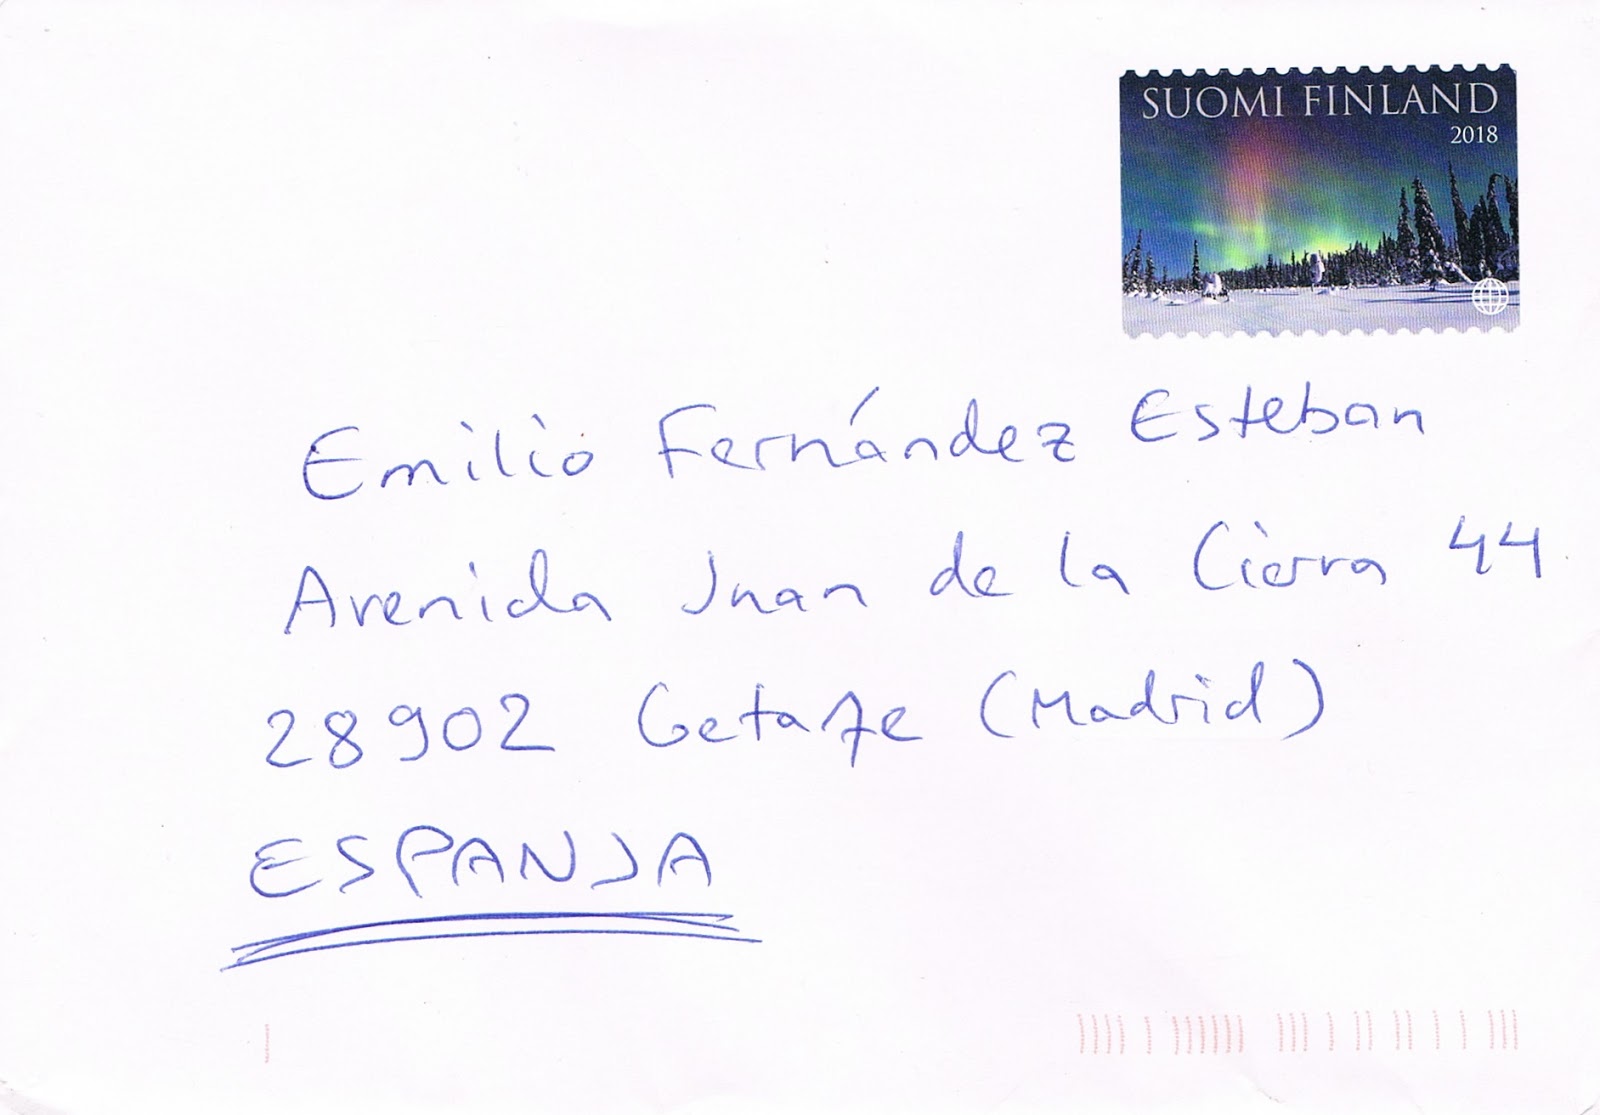 SUOMI FINLAND
2018
Emilio Fernández Esteban
Avenida Juan de la Cierra 44
28902 Getafe (Madrid)
ESPANJA